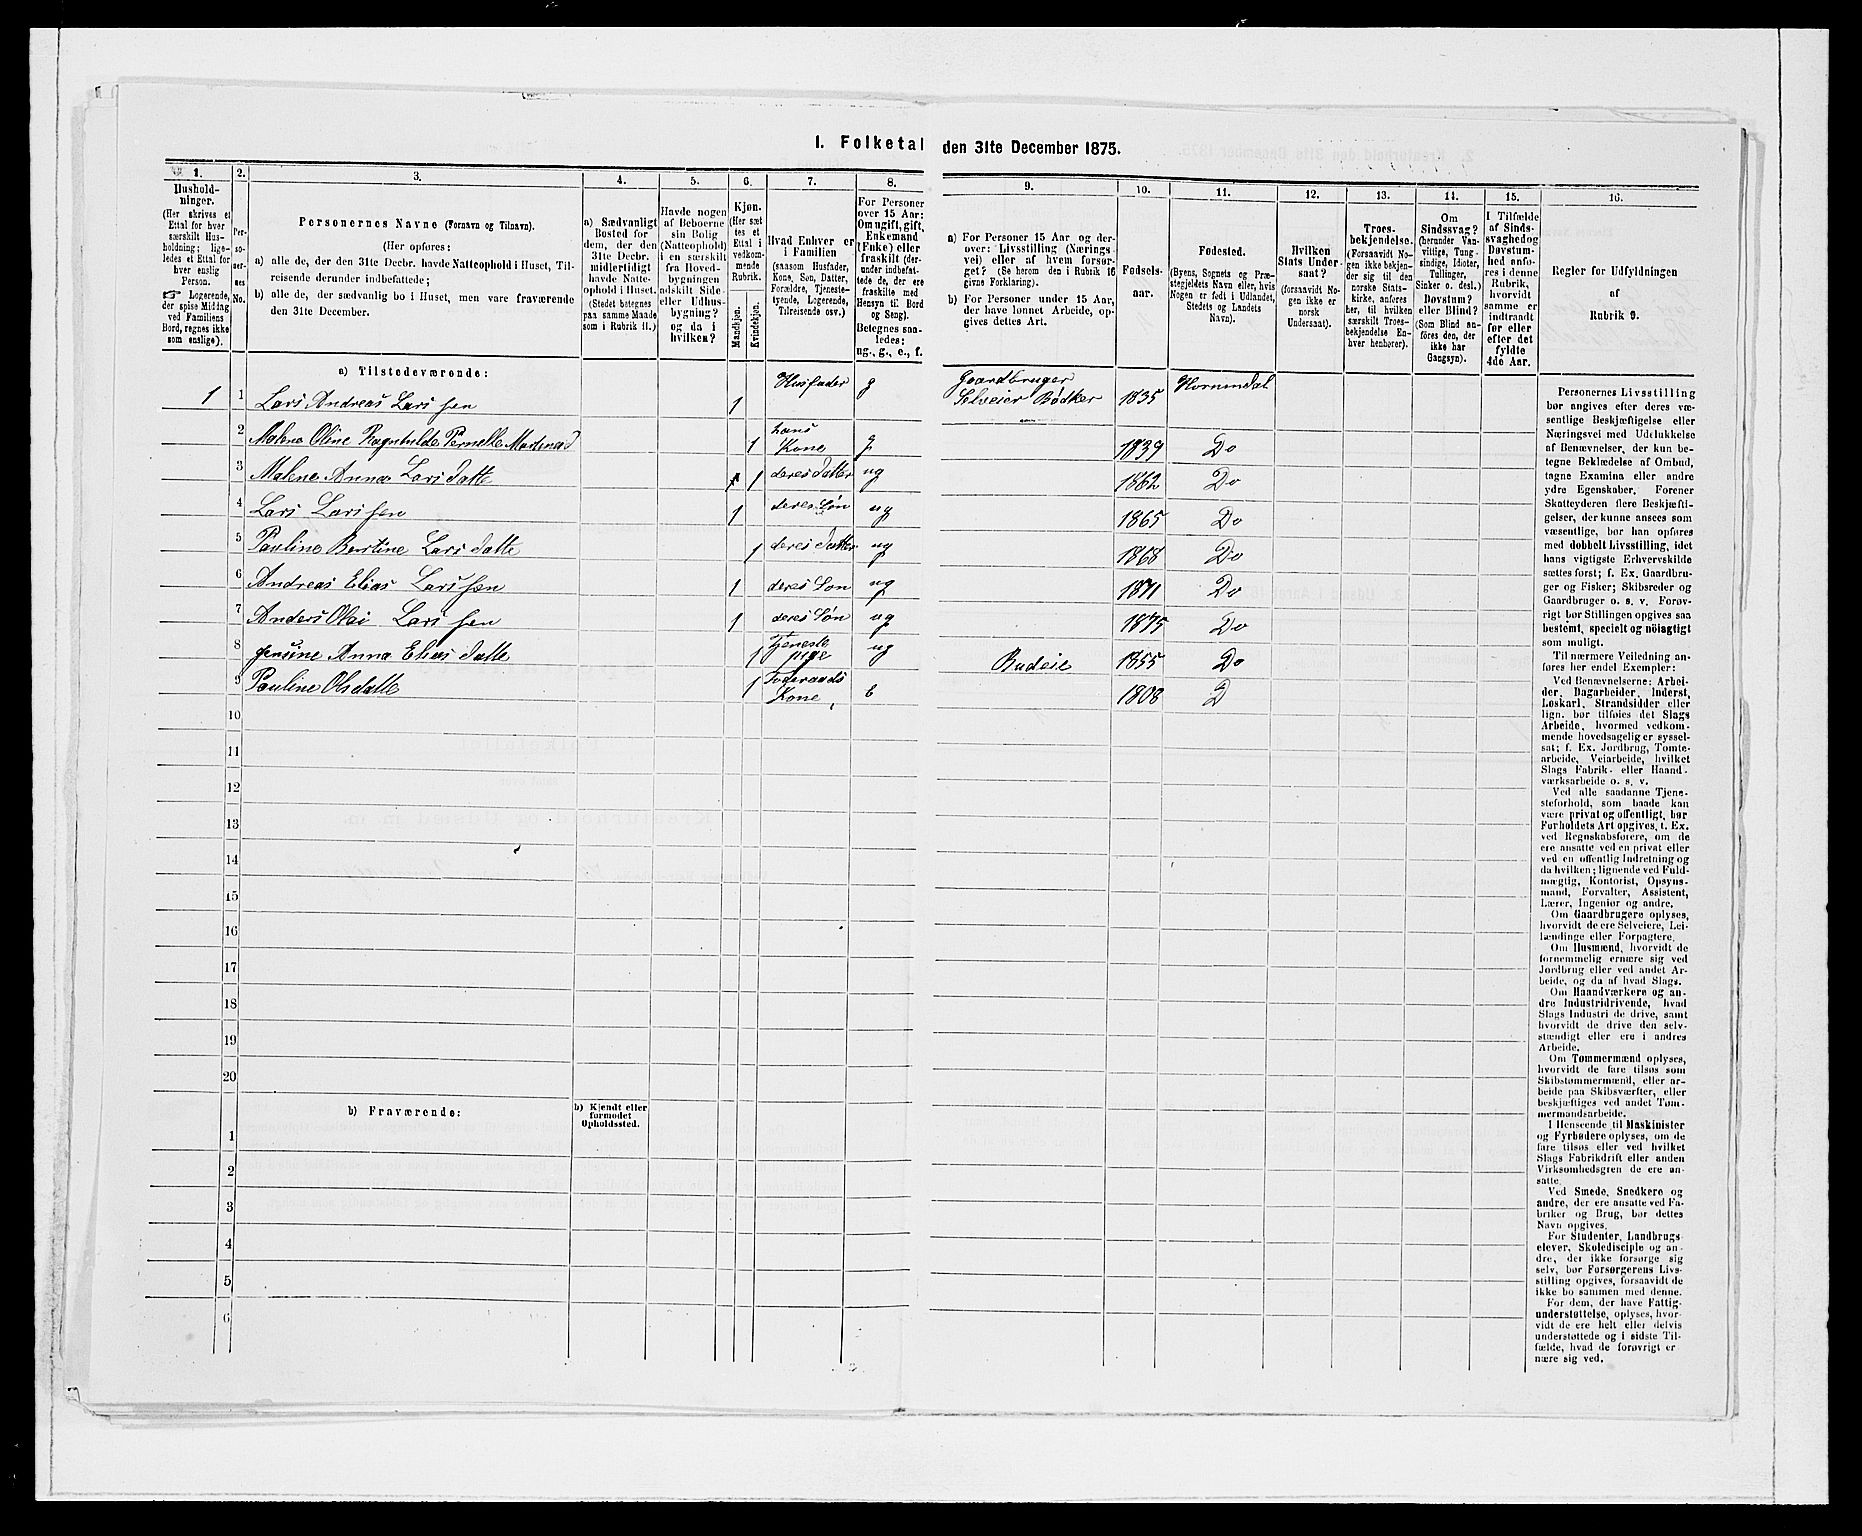 I. Folketal den 31te December 1875.
1.
Hushold-
ninger.
(Her skrives et
Ettal for hver
særskilt Hus-
holdning; lige-
ledes et Ettal for
hver enslig
Person.
☞ Logerende,
der spise Middag
ved Familiens
Bord, regnes ikke
som enslige).
2.
Per-
so-
ner-
nes
No.
3.
Personernes Navne (Fornavn og Tilnavn).
(Her opføres:
a) alle de, der den 31te Decbr. havde Natteophold i Huset, Til-
reisende derunder indbefattede;
b) alle de, der sædvanlig bo i Huset, men vare fraværende
den 31te December.
4.
a) Sædvanligt
Bosted for
dem, der den
31te Decbr.
midlertidigt
havde Natte-
ophold i Huset.
(Stedet betegnes
paa samme Maade
som i Rubrik 11.)
5.
Havde nogen
af Beboerne
sin Bolig
(Natteophold)
i en særskilt
fra Hoved-
bygningen
adskilt Side-
eller Udhus-
bygning?
og da i
hvilken?
6.
Kjøn.
(Her sæt-
tes et
Ettal i
vedkom-
mende
Rubrik.
Mandkjøn.
Kvindekjøn.
7.
Hvad Enhver er
i Familien
(saasom Husfader,
Kone, Søn, Datter,
Forældre, Tjeneste-
tyende, Logerende,
Tilreisende osv.)
8.
For Personer
over 15 Aar:
Om ugift, gift,
Enkemand
(Enke) eller
fraskilt (der-
under indbefat-
tede de, der ere
fraskilte med
Hensyn til Bord
og Seng).
Betegnes saa-
ledes:
ug., g., e., f.
9.
a) For Personer 15 Aar og der-
over: Livsstilling (Nærings-
vei) eller af hvem forsør-
get? (Se herom den i Rubrik 16
givne Forklaring).
b) For Personer under 15 Aar,
der have lønnet Arbeide, op-
gives dettes Art.
10.
Fødsels-
aar.
11.
Fødested.
(Byens, Sognets og Præ-
stegjeldets Navn eller, hvis
Nogen er født i Udlandet,
Stedets og Landets
Navn).
12.
Hvilken
Stats Under-
saat?
(forsaavidt No-
gen ikke er
norsk
Undersaat).
13.
Troes-
bekjendelse.
(Forsaavidt No-
gen ikke bekjen-
der sig til den
norske Stats-
kirke, anføres
her, til hvilken
særskilt Troes-
bekjendelse En-
hver henhører).
14.
Om
Sindssvag?
(herunder Van-
vittige, Tung-
sindige, Idioter,
Tullinger,
Sinker o. desl.)
Døvstum?
eller Blind?
(Som Blind an-
føres den, der
ikke har
Gangsyn).
15.
I Tilfælde
af Sinds-
svaghed og
Døvstum-
hed anfø-
res i denne
Rubrik,
hvorvidt
samme er
indtraadt
før eller
efter det
fyldte
4de Aar.
16.
Regler for Udfyldningen
af
Rubrik 9.
a) Tilstedeværende:
1 1 Lars Andreas Larssen 1 Husfader g Gaardbruger Selveier Bødker 1835 Hornindal
2 Malene Oline Ragnhilde Pernelle 1 hans Kone g 1839 Do
3 Malene Anna Larsdatte 1 deres Datter ug 1862 Do
4 Lars Larssen 1 deres Søn ug 1865 Do
5 Pauline Bertine Larsdatte 1 deres Datter ug 1868 Do
6 Andreas Elias Larssen 1 deres Søn ug 1871 Do
7 Anders Olai Larssen 1 deres Søn ug 1875 Do
8 Jensine Anna Eliasdatte 1 Tjeneste pige ug Budeie 1855 Do
9 Pauline Olsdatte 1 Foderaads Kone E 1808 D
10
11
12
13
14
15
16
17
18
19
20
b) Fraværende:
b) Kjendt eller
formodet
Opholdssted.
1
2
3
4
5
6
Personernes Livsstilling
bør angives efter deres væ-
sentlige Beskjæftigelse eller
Næringsvei med Udelukkelse
af Benævnelser, der kun be-
tegne Beklædelse af Ombud,
tagne Examina eller andre
ydre Egenskaber. Forener
Skatteyderen flere Beskjæfti-
gelser, der kunne ansees som
væsentlige, bør han opføres
med dobbelt Livsstilling, idet
hans vigtigste Erhvervskilde
sættes først; f. Ex. Gaardbru-
ger og Fisker; Skibsreder og
Gaardbruger o. s. v. Forøv-
rigt bør Stillingen opgives saa
bestemt, specielt og nöiagtigt
som muligt.
Til nærmere Veiledning an-
føres her endel Exempler:
Ved Benævnelserne: Arbei-
der, Dagarbeider, Inderst,
Løskarl, Strandsidder eller
lign. bør tilføies det Slags
Arbeide, hvormed vedkom-
mende hovedsagelig er syssel-
sat; f. Ex. Jordbrug, Tomte-
arbeide, Veiarbeide, hvilket
Slags Fabrik- eller Haand-
værksarbeide o. s. v.
Ved alle saadanne Tjene-
steforhold, som baade kan
være privat og offentligt, bør
Forholdets Art opgives, f. Ex.
ved Regnskabsførere, om de
ere ansatte ved en privat eller
ved en offentlig Indretning og
da hvilken; lignende ved Fuld-
mægtig, Kontorist, Opsyns-
mand, Forvalter, Assistent,
Lærer, Ingeniør og andre.
Om Gaardbrugere oplyses,
hvorvidt de ere Selveiere, Lei-
lændinge eller Forpagtere.
Om Husmænd, hvorvidt de
fornemmelig ernære sig ved
Jordbrug eller ved andet Ar-
beide, og da af hvad Slags.
Om Haandværkere og an-
dre Industridrivende, hvad
Slags Industri de drive, samt
hvorvidt de drive den selv-
stændigt eller ere i andres
Arbeide.
Om Tømmermænd oplyses,
hvorvidt de fare tilsøs som
Skibstømmermænd, eller ar-
beide paa Skibsværfter, eller
beskjæftiges ved andet Tøm-
mermandsarbeide.
I Henseende til Maskinister
og Fyrbødere oplyses, om de
fare tilsøs eller ved hvilket
Slags Fabrikdrift eller anden
Virksomhedsgren de ere an-
satte.
Ved Smede, Snedkere og
andre, der ere ansatte ved Fa-
briker og Brug, bør dettes
Navn opgives.
For Studenter, Landbrugs-
elever, Skoledisciple og an-
dre, der ikke forsørge sig
selv, bør Forsørgerens Livs-
stilling opgives, forsaavidt de
ikke bo sammen med denne.
For dem, der have Fattig-
understøttelse, oplyses, hvor-
vidt de ere helt eller delvis
understøttede og i sidste Til-
fælde, hvad de forøvrigt er
nære sig ved.